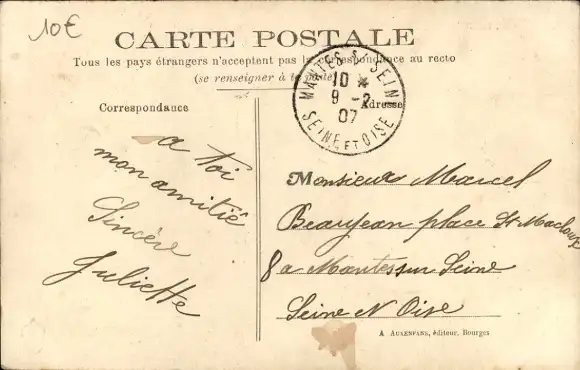 10€
CARTE POSTALE
Tous les pays étrangers n'acceptent pas la correspondance au recto
(se renseigner à la poste)
MANTES S. SEINE
10 *
9 - 2
07
SEINE ET OISE
Correspondance
Adresse
a toi
mon amitié
Sincère
Juliette
Monsieur Marcel
Beaujean place St Macloux
8 a Mantes sur Seine
Seine N Oise
A AUXENFANS, éditeur. Bourges